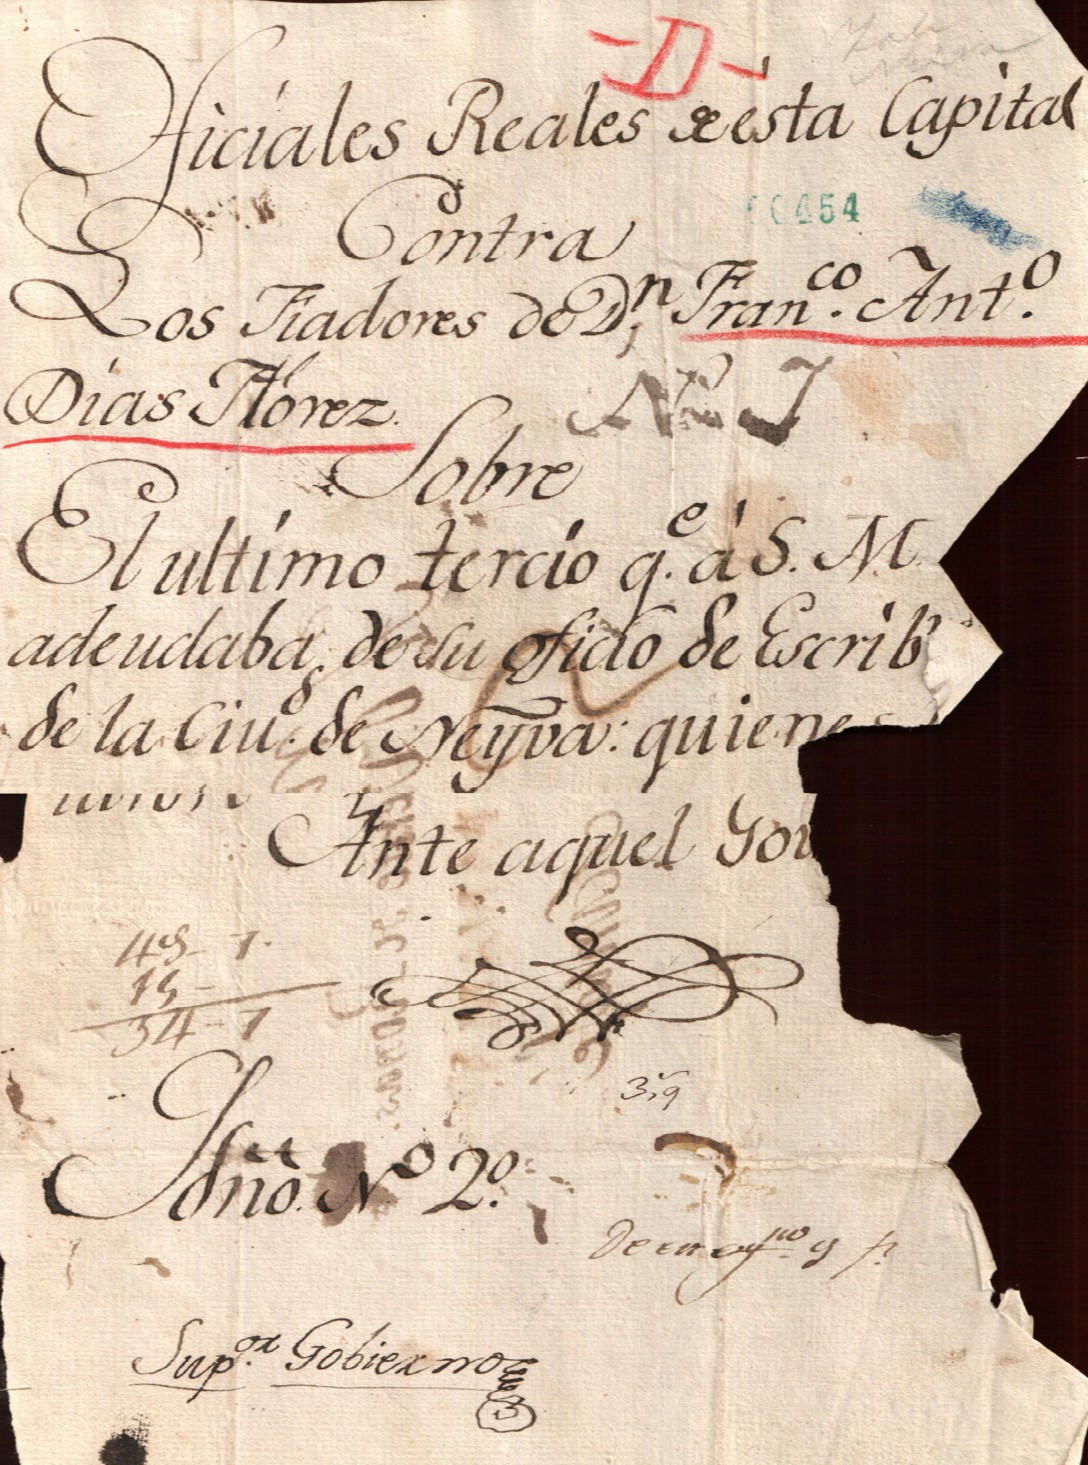 -D-
Oficiales Reales de ésta Capital
Contra
00454
Los Fiadores de Dn, Franco. Anto.
Dias Flórez.
No 1
Sobre
El ultimo tercio qe. á S. M.
adeudaba, de su oficio de Escrib
de la Ciud. de Neyva: quienes
Ante aquel Gov
49- 1.
15-
34-1
3,,9
Idño. No 2o.
Supor. Gobierno